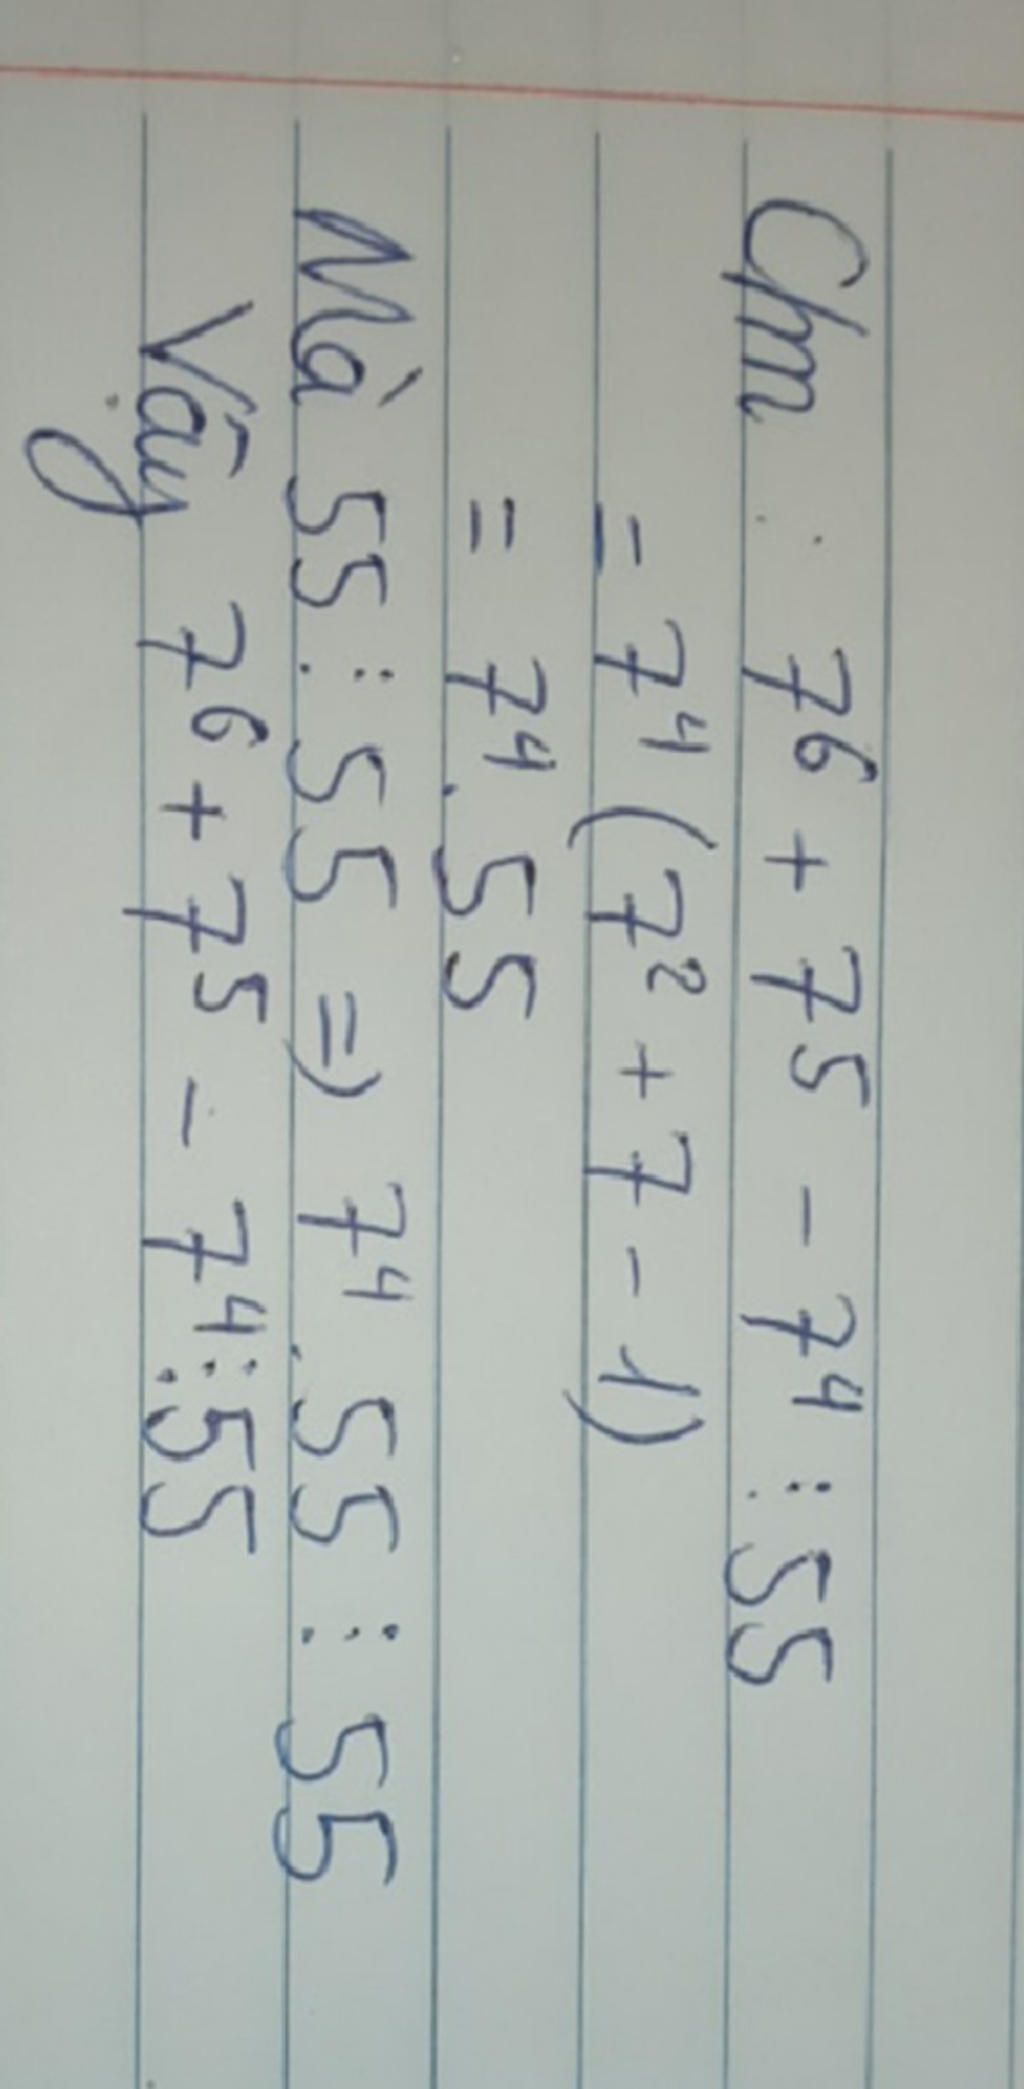 Cm 7⁶ + 7⁵ - 7⁴ ⋮ 55
= 7⁴ (7² + 7 - 1)
= 7⁴ . 55
Mà 55 ⋮ 55 => 7⁴ . 55 ⋮ 55
Vậy 7⁶ + 7⁵ - 7⁴ ⋮ 55